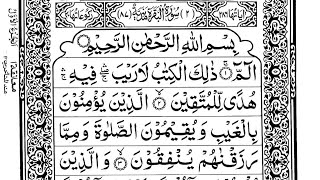 بِسْمِ اللّٰهِ الرَّحْمٰنِ الرَّحِيْمِ
الٓمّٓ ذٰلِكَ الْكِتٰبُ لَا رَيْبَ فِيْهِ
هُدًى لِّلْمُتَّقِيْنَ الَّذِيْنَ يُؤْمِنُوْنَ
بِالْغَيْبِ وَيُقِيْمُوْنَ الصَّلٰوةَ وَمِمَّا
رَزَقْنٰهُمْ يُنْفِقُوْنَ وَالَّذِيْنَ